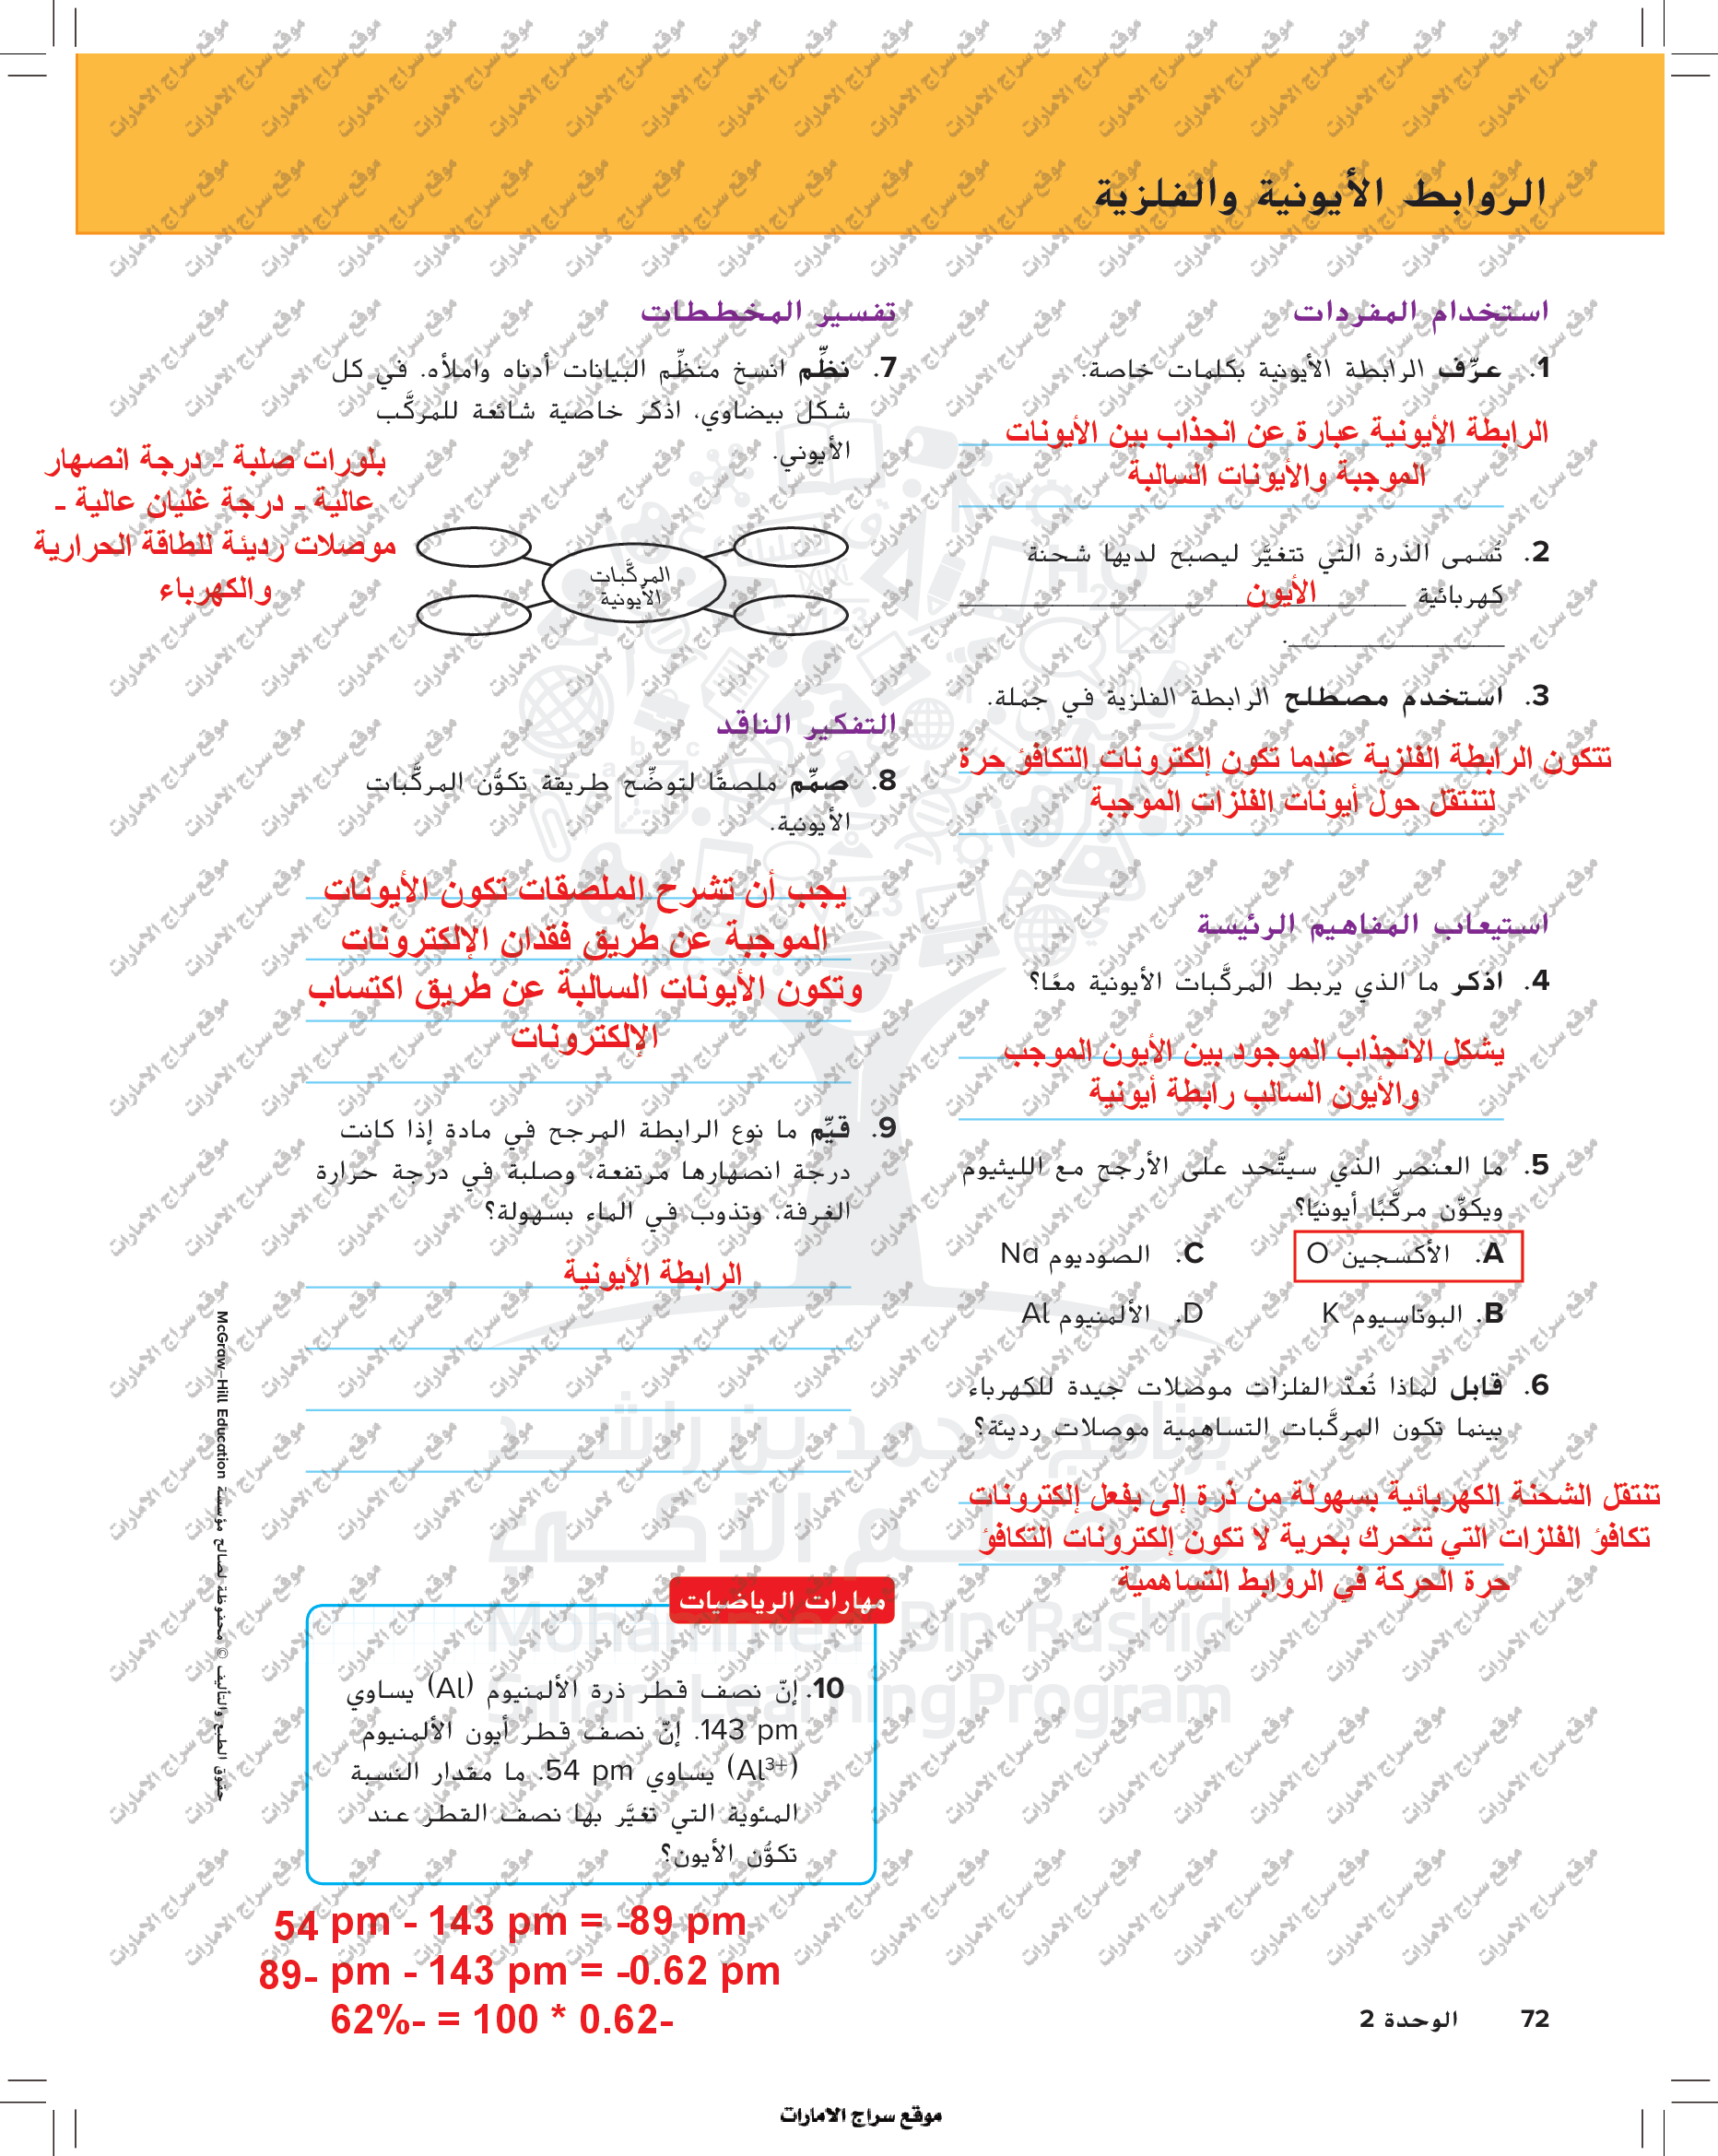 الروابط الأيونية والفلزية
استخدام المفردات
1. عرِّف الرابطة الأيونية بكلمات خاصة.
الرابطة الأيونية عبارة عن انجذاب بين الأيونات
الموجبة والأيونات السالبة
2. تُسمى الذرة التي تتغيَّر ليصبح لديها شحنة
كهربائية الأيون
.
3. استخدم مصطلح الرابطة الفلزية في جملة.
تتكون الرابطة الفلزية عندما تكون إلكترونات التكافؤ حرة
لتنتقل حول أيونات الفلزات الموجبة
استيعاب المفاهيم الرئيسة
4. اذكر ما الذي يربط المركَّبات الأيونية معًا؟
يشكل الانجذاب الموجود بين الأيون الموجب
والأيون السالب رابطة أيونية
5. ما العنصر الذي سيتَّحد على الأرجح مع الليثيوم
ويكوِّن مركَّبًا أيونيًا؟
A. الأكسجين O
C. الصوديوم Na
B. البوتاسيوم K
D. الألمنيوم Al
6. قابل لماذا تُعدّ الفلزات موصلات جيدة للكهرباء
بينما تكون المركَّبات التساهمية موصلات رديئة؟
تنتقل الشحنة الكهربائية بسهولة من ذرة إلى بفعل إلكترونات
تكافؤ الفلزات التي تتحرك بحرية لا تكون إلكترونات التكافؤ
حرة الحركة في الروابط التساهمية
تفسير المخططات
7. نظِّم انسخ منظِّم البيانات أدناه واملأه. في كل
شكل بيضاوي، اذكر خاصية شائعة للمركَّب
الأيوني.
بلورات صلبة - درجة انصهار
عالية - درجة غليان عالية -
موصلات رديئة للطاقة الحرارية
والكهرباء
المركَّبات
الأيونية
التفكير الناقد
8. صمِّم ملصقًا لتوضِّح طريقة تكوُّن المركَّبات
الأيونية.
يجب أن تشرح الملصقات تكون الأيونات
الموجبة عن طريق فقدان الإلكترونات
وتكون الأيونات السالبة عن طريق اكتساب
الإلكترونات
9. قيِّم ما نوع الرابطة المرجح في مادة إذا كانت
درجة انصهارها مرتفعة، وصلبة في درجة حرارة
الغرفة، وتذوب في الماء بسهولة؟
الرابطة الأيونية
مهارات الرياضيات
10. إنّ نصف قطر ذرة الألمنيوم (Al) يساوي
143 pm. إنّ نصف قطر أيون الألمنيوم
(Al³⁺) يساوي 54 pm. ما مقدار النسبة
المئوية التي تغيَّر بها نصف القطر عند
تكوُّن الأيون؟
54 pm - 143 pm = -89 pm
89- pm - 143 pm = -0.62 pm
62%- = 100 * 0.62-
72 الوحدة 2
حقوق الطبع والتأليف © محفوظة لصالح مؤسسة McGraw-Hill Education
برنامج محمد بن راشد
للتعلم الذكي
Mohammed Bin Rashid
Smart Learning Program
موقع سراج الامارات